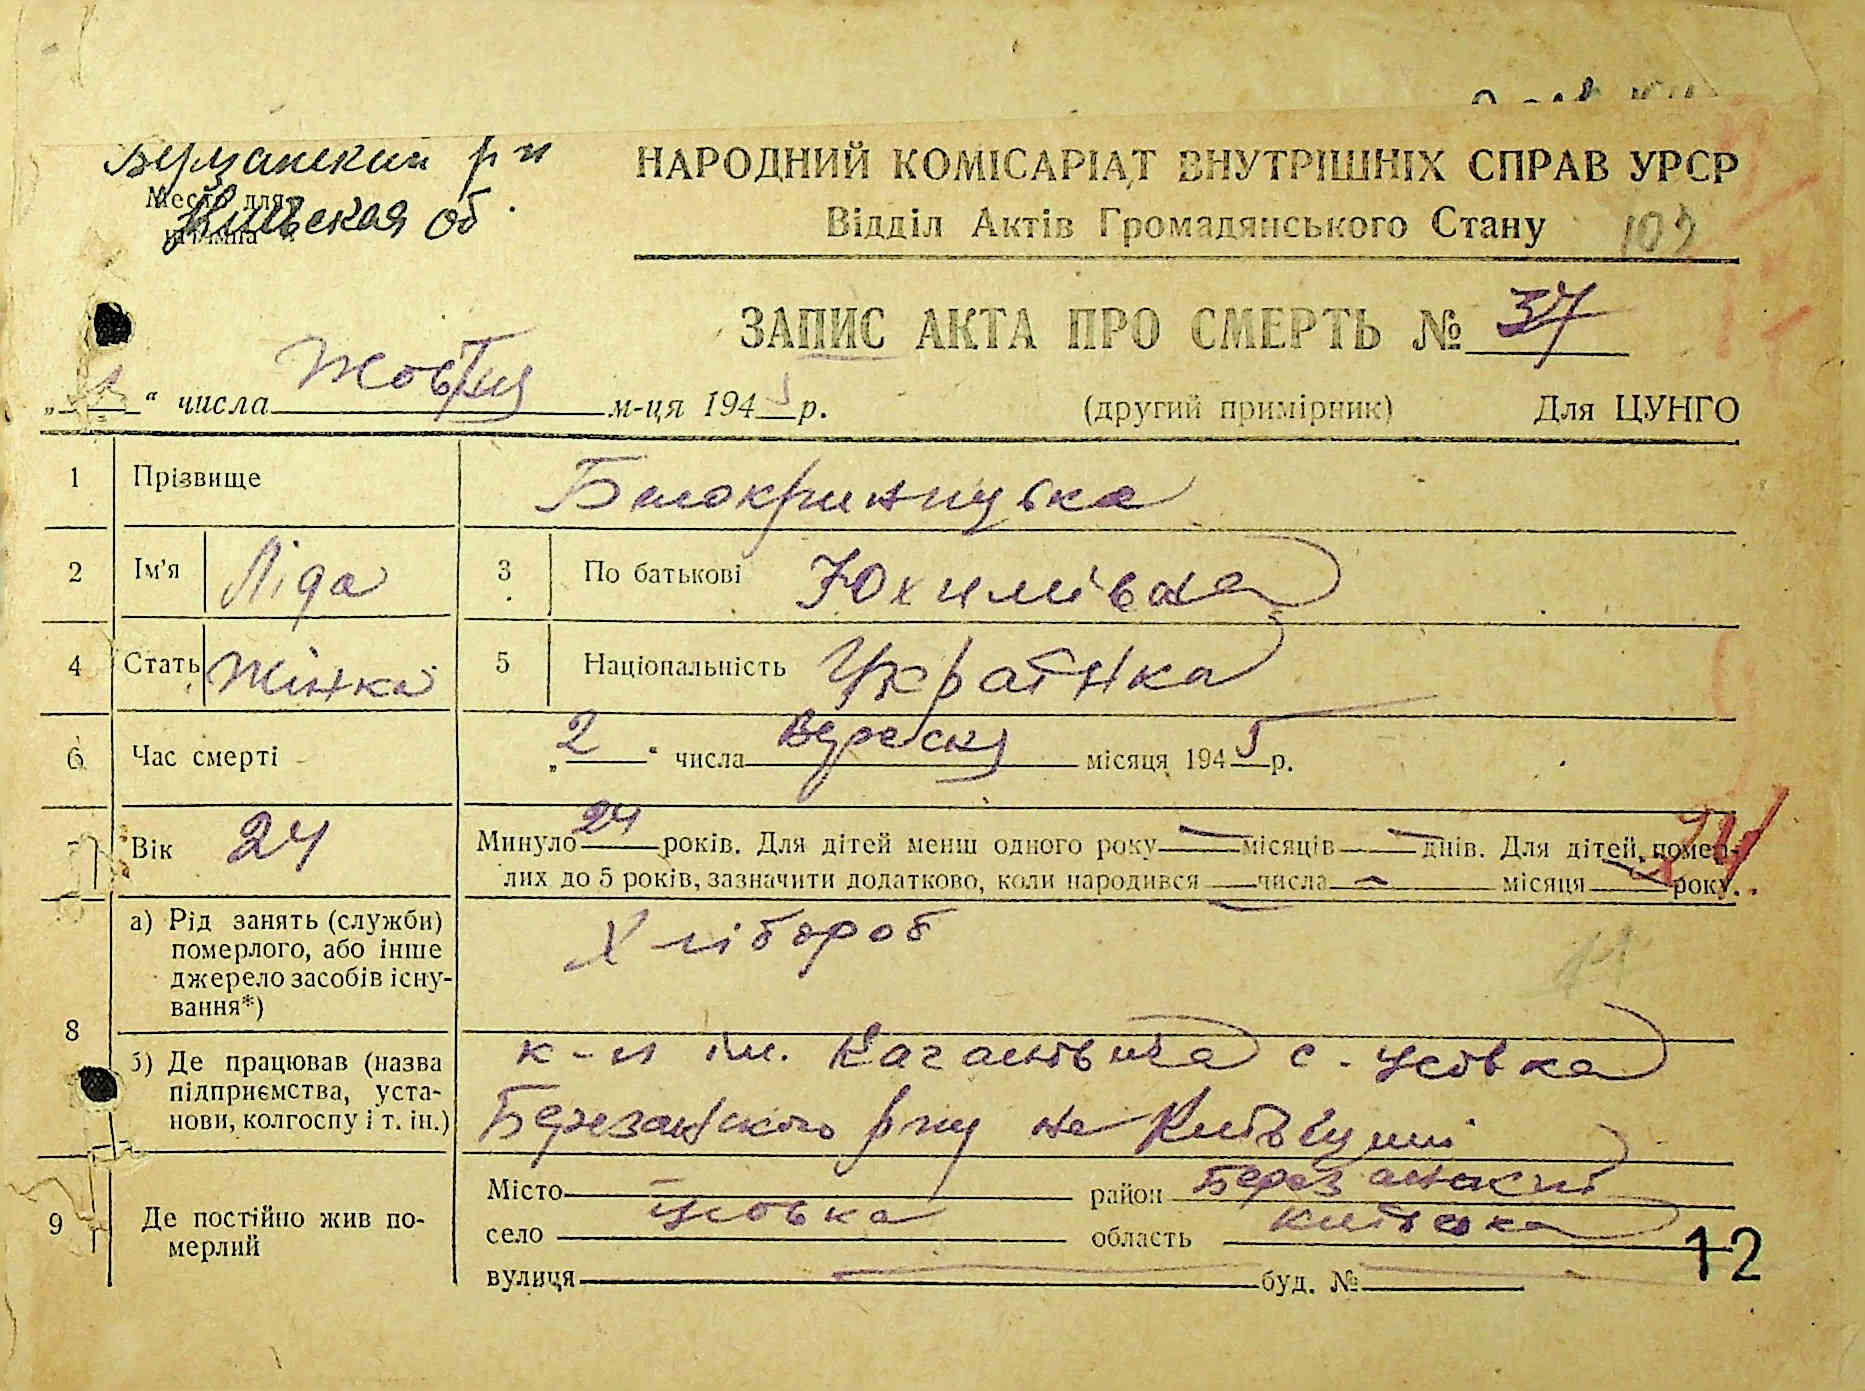 Березанский р-н
Место для
Киевская об.
штампа
НАРОДНИЙ КОМІСАРІАТ ВНУТРІШНІХ СПРАВ УРСР
Відділ Актів Громадянського Стану 102
ЗАПИС АКТА ПРО СМЕРТЬ № 37
„ 1 “ числа Жовтня м-ця 1945 р. (другий примірник) Для ЦУНГО
1 Прізвище Билокриницька
2 Ім'я Ліда 3 По батькові Юхимівна
4 Стать Жінка 5 Національність Українка
6 Час смерті „ 2 “ числа Вересня місяця 1945 р.
7 Вік 24 Минуло 24 років. Для дітей менш одного року — місяців — днів. Для дітей, помер-
лих до 5 років, зазначити додатково, коли народився — числа — місяця — року.
24
8 а) Рід занять (служби) померлого, або інше джерело засобів існу-вання*) Хлібороб
11
б) Де працював (назва підприємства, уста-нови, колгоспу і т. ін.) к-п ім. Кагановича с. Усівка
Березанського р-ну на Київщині
9 Де постійно жив по-мерлий Місто — район Березанський
село Усівка область Київська
12
вулиця — буд. № —